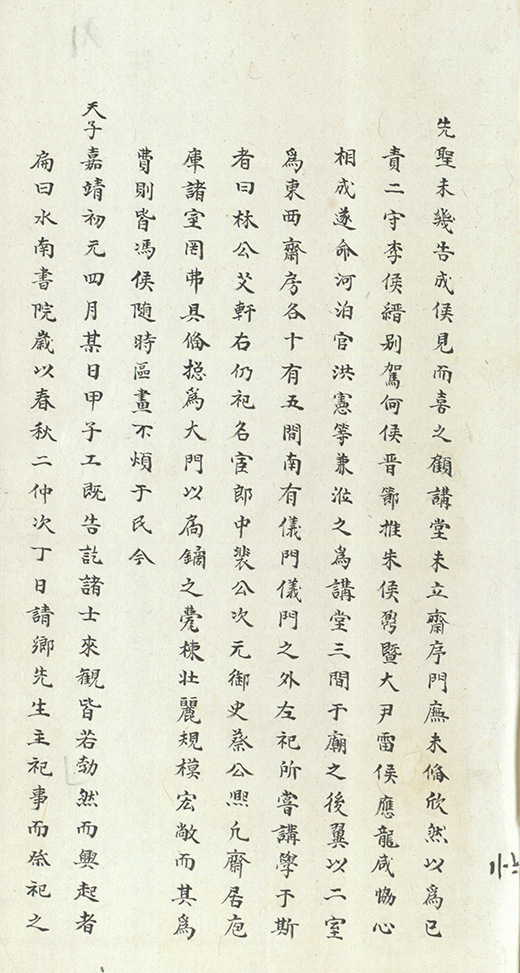 先聖未幾告成侯見而喜之顧講堂未立齋序門廡未俻欣然以爲已
責二守李侯緡别駕何侯晋節推朱侯驺暨大尹雷侯應龍咸恊心
相成遂命河泊官洪憲等兼涖之爲講堂三間于廟之後翼以二室
爲東西齋房各十有五間南有儀門儀門之外左祀所嘗講學于斯
者曰林公艾軒右仍祀名宦郎中裴公次元御史蔡公凞凡齋居庖
庫諸室罔弗具俻揔爲大門以扃鐍之甍棟壯麗規模宏敞而其爲
費則皆馮侯随時區畫不煩于民今
天子嘉靖初元四月某日甲子工既告訖諸士來觀皆若勃然而興起者
扁曰水南書院歲以春秋二仲次丁日請鄉先生主祀事而祭祀之